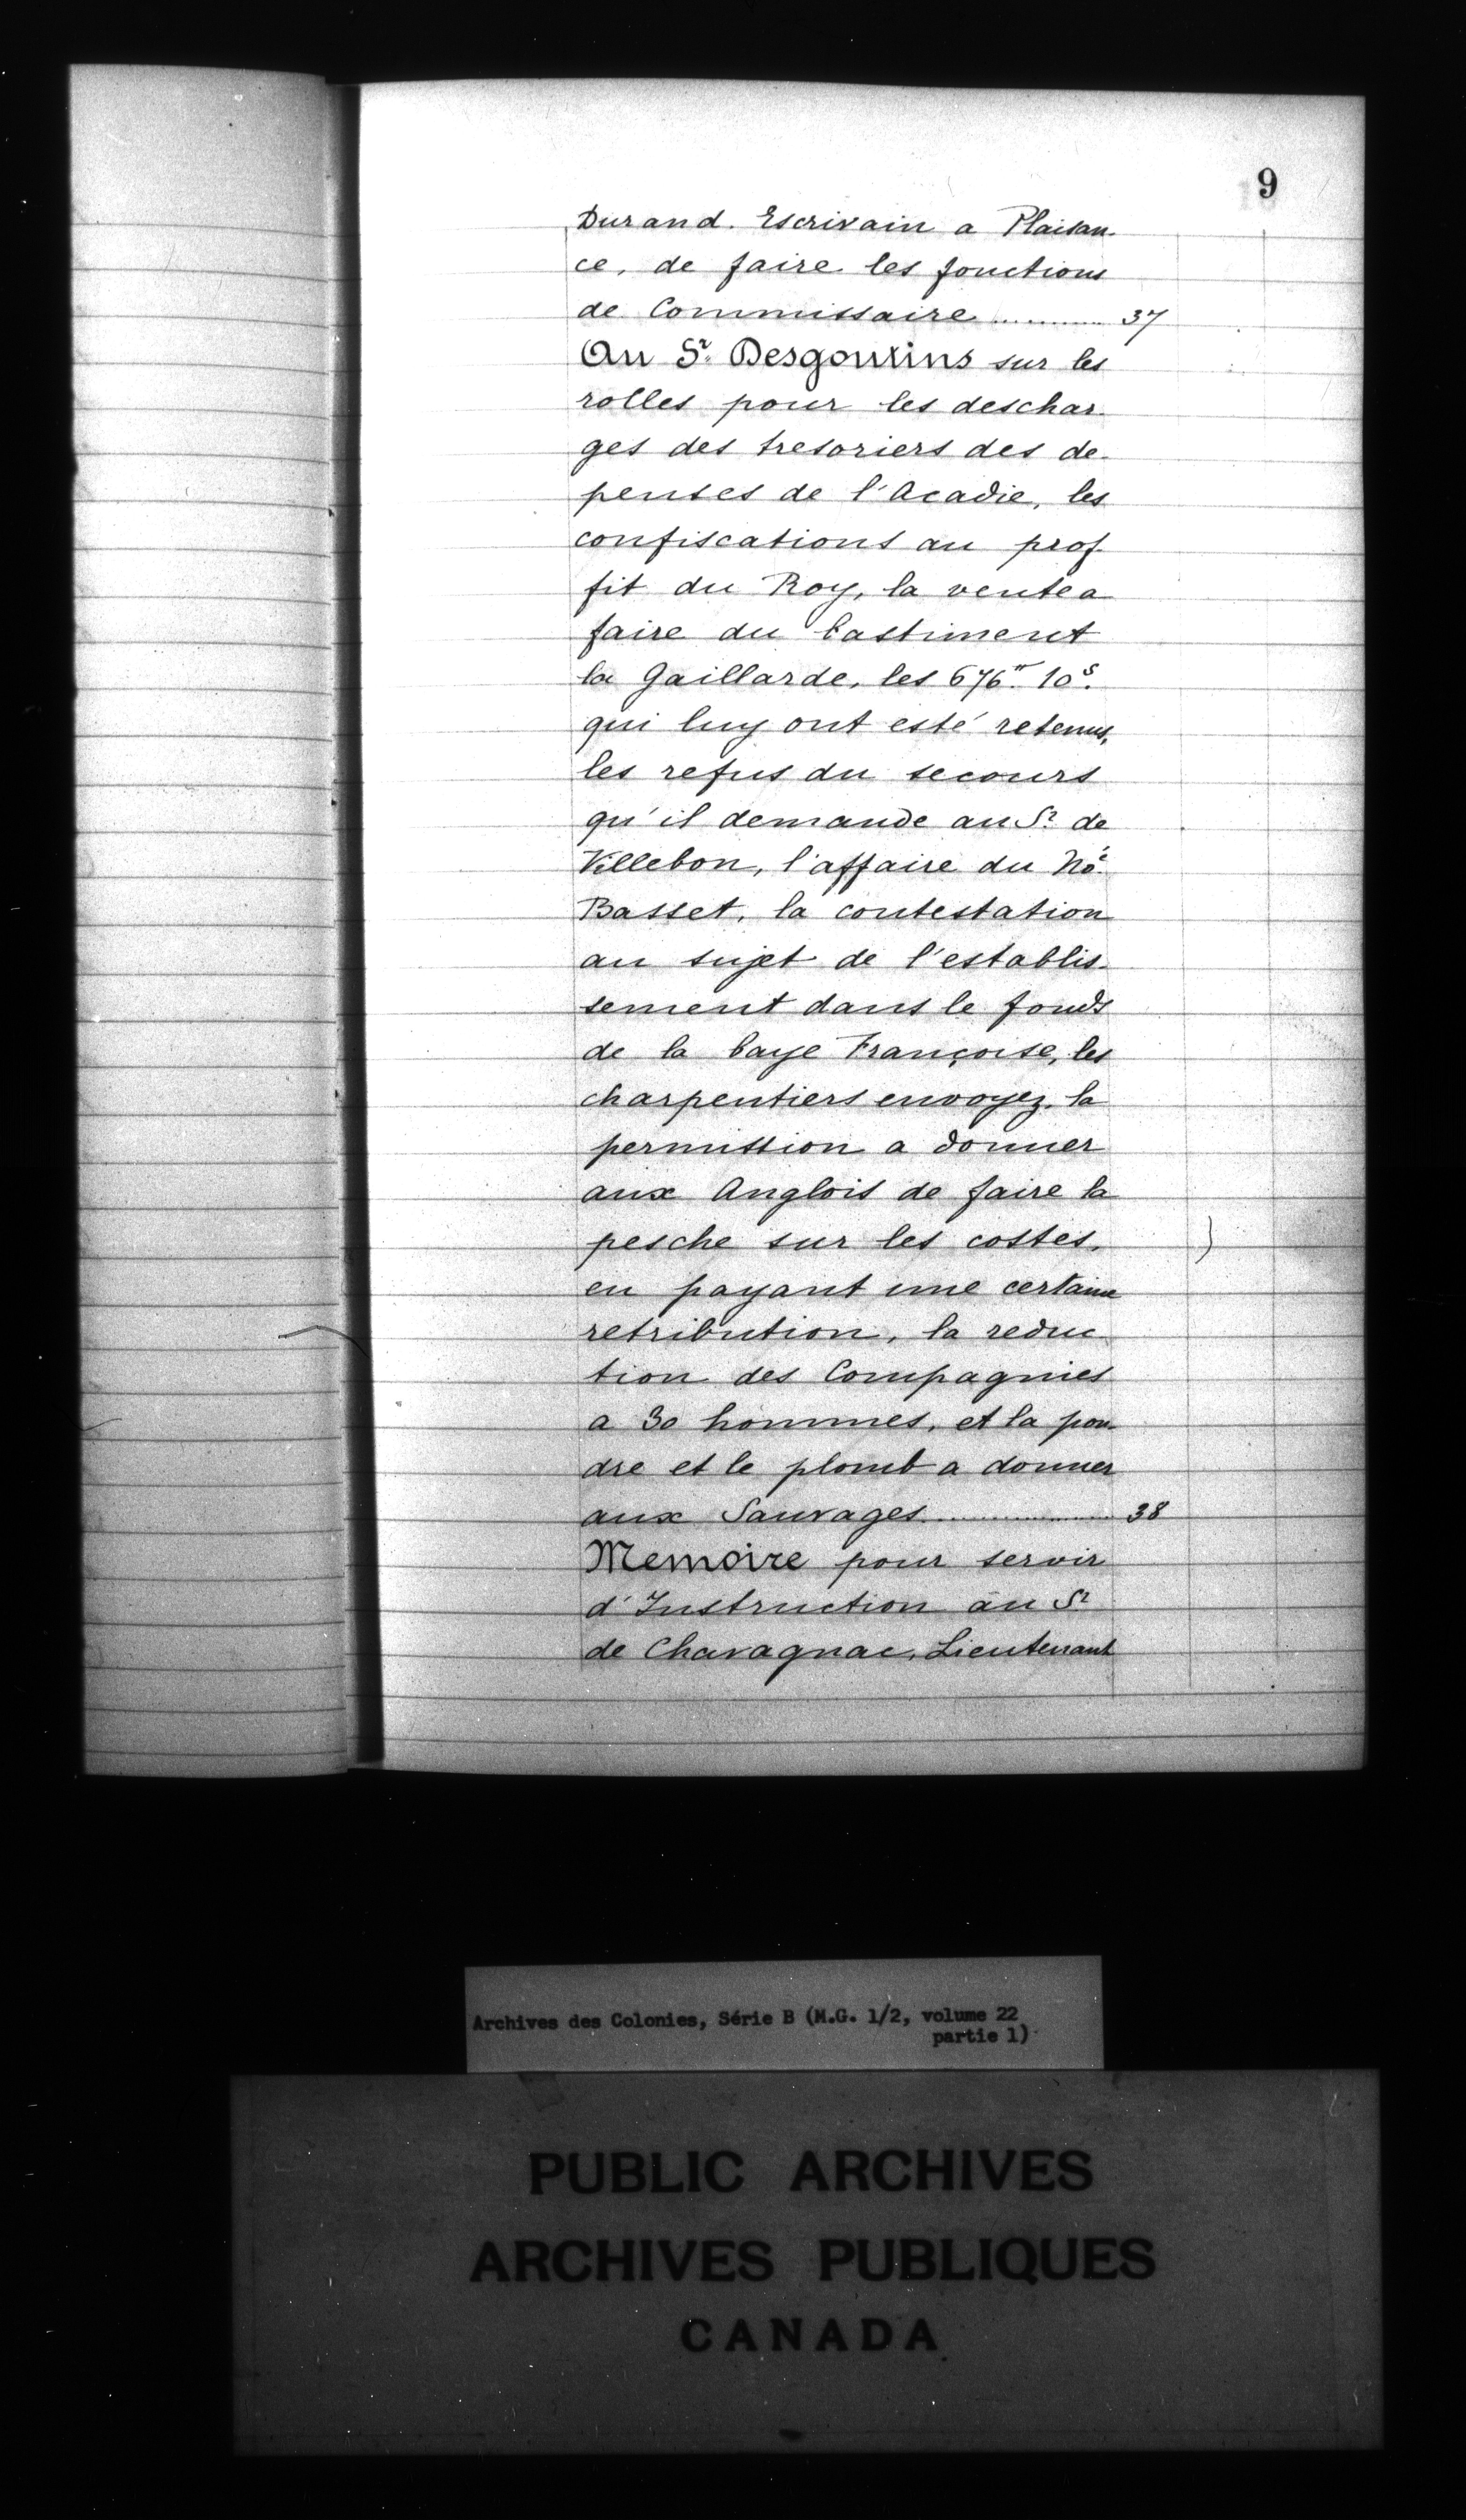 9
Durand. Escrivain a Plaisan-
ce, de faire les fonctions
de Commissaire ............ 37
Au Sr. Desgoutins sur les
rolles pour les deschar-
ges des tresoriers des de-
penses de l'Acadie, les
confiscations au prof-
fit du Roy, la vente a
faire du bastiment
la Gaillarde, les 676tt. 10s.
qui luy ont esté retenus,
les refus du secours
qu'il demande au Sr. de
Villebon, l'affaire du Né.
Basset, la contestation
au sujet de l'establis-
sement dans le fonds
de la baye Françoise, les
charpentiers envoyez, la
permission a donner
aux Anglois de faire la
pesche sur les costes,
en payant une certaine
retribution, la reduc
tion des Compagnies
a 30 hommes, et la pou-
dre et le plomb a donner
aux Sauvages .................. 38
Memoire pour servir
d'Instruction au Sr
de Chavagnac, Lieutenant
Archives des Colonies, Série B (M.G. 1/2, volume 22
partie 1)
PUBLIC ARCHIVES
ARCHIVES PUBLIQUES
CANADA